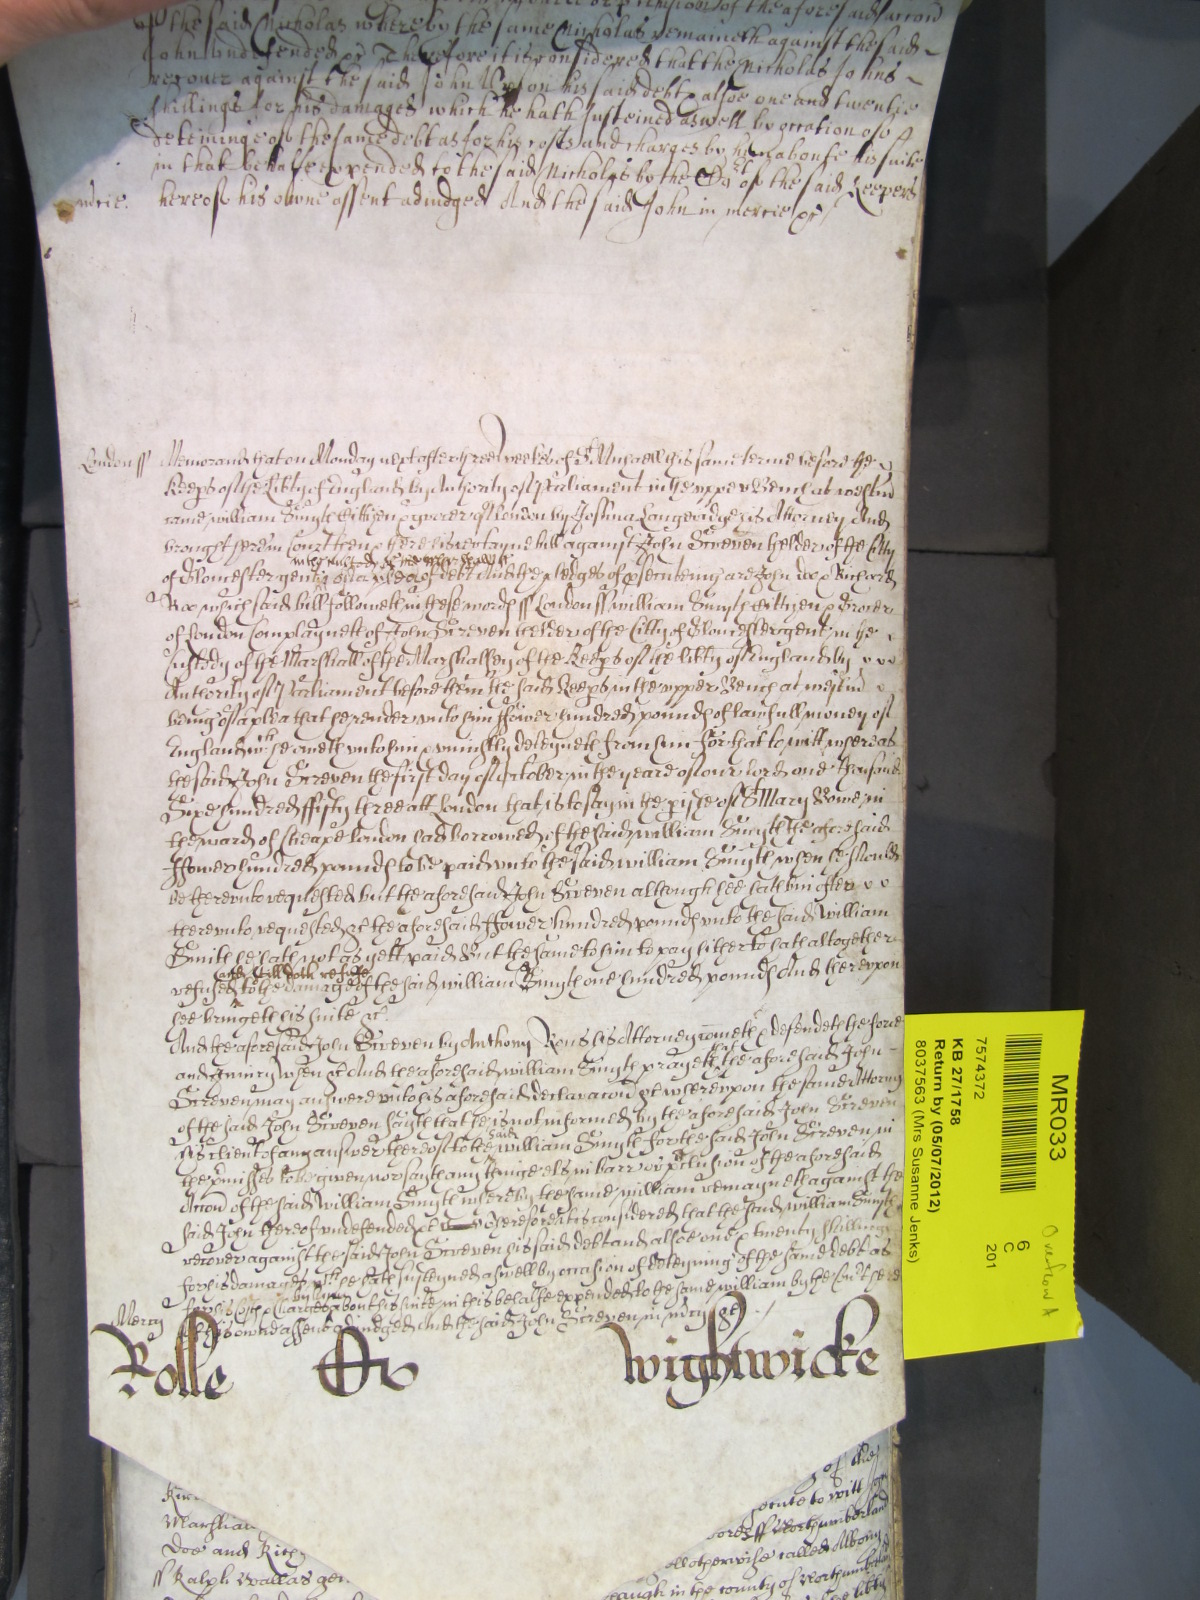 of the said Nicholas whereby the same Nicholas remaineth against the said
John undefended &c Therefore it is considered that the Nicholas Johns
recover against the said John Upton his said debt & alsoe one and twentie
shillings for his damages which he hath susteined aswell by occation of
deteininge of the same debt as for his costs and charges by him aboute his suite
in that behalfe expended to the said Nicholas by the Court of the said Keepers
mcie. hereof his owne assent adiudged And the said John in mercie &c
London ss Memorand that on Monday next after three weekes of St Michaell this same terme before the
Keeps of the Libty of England by Authority of Parliament in the upper Bench at westm
came william Smyth Cittizen & grocer of London by Josima Langwadge his Attorney And
brought here in Court then & there his certayne bill against John Screven thelder of the Citty
in the custody of the marshall &c
of Gloucester gent of a plea of debt And the pledges of psecuteing are John doo & Richard
Roo which said bill followeth in these words ss London ss william Smyth Cittizen & Grocer
of London Complayneth of John Screven thelder of the Citty of Gloucester gent in the
Custody of the Marshall of the Marshalsey of the Keeps of the libty of England by
Authority of Parliament before them the said Keeps in the upper Bench at westm
being of a plea that he render unto him ffower hundred pounds of lawfull money of
England wch he oweth unto him & uniustly deteyneth from him For that to witt whereas
the said John Screven the first day of October in the yeare of our lord one thousand
Sixe hundred fifty three att London that is to say in the pishe of St Mary Bowe in
the ward of Cheape London had borrowed of the said william Smyth the aforesaid
ffower hundred pounds to be paid unto the said william Smyth when he should
be thereunto requested but the aforesaid John Screven although hee hath bin often
thereunto requested &c the aforesaid ffower hundred pounds unto the said William
Smith he hath not as yett paid But the same to him to pay hitherto hath altogether
and still doth refuse
refused to the damage of the said william Smyth one hundred pounds And thereupon
hee bringeth his suite &c
And the aforesaid John Screven by Anthony Rous his Attorney cometh & defendeth the force
and iniury when &c And the aforesaid william Smyth prayeth that the aforesaid John
Screven may answere unto his aforesaid declaracon &c whereupon the same Attorny
of the said John Screven sayth that he is not informed by the aforesaid John Screven
said
his client of any answer thereof to the william Smyth for the said John Screven in
the pmisses to be given nor sayth any thinge els in barr or pclusion of the aforesaid
Accon of the said William Smyth whereby the same william remayneth against the
said John thereof undefended &c Therefore it is considered that the said william Smyth
recover against the said John Screven his said debt and alsoe one & twenty shillings
for his damages wch he hath susteyned aswell by occasion of deteyning of the same debt as
by him
for his costs & charges about his suite in this behalfe expended to the same william by the Court here
Mercy of his owne assent adiudged And the said John Screven in mcy &c
Rolle Er Wightwicke
of the
Marshiall
Doe and Rich
ss Ralph Wallas gen
secute to witt
words ss Northumberland
all otherwise called
in the county of Northumberland
MR033
7574372
KB 27/1758
Return by (05/07/2012)
8037563 (Mrs Susanne Jenks)
6
C
201
Overflow A